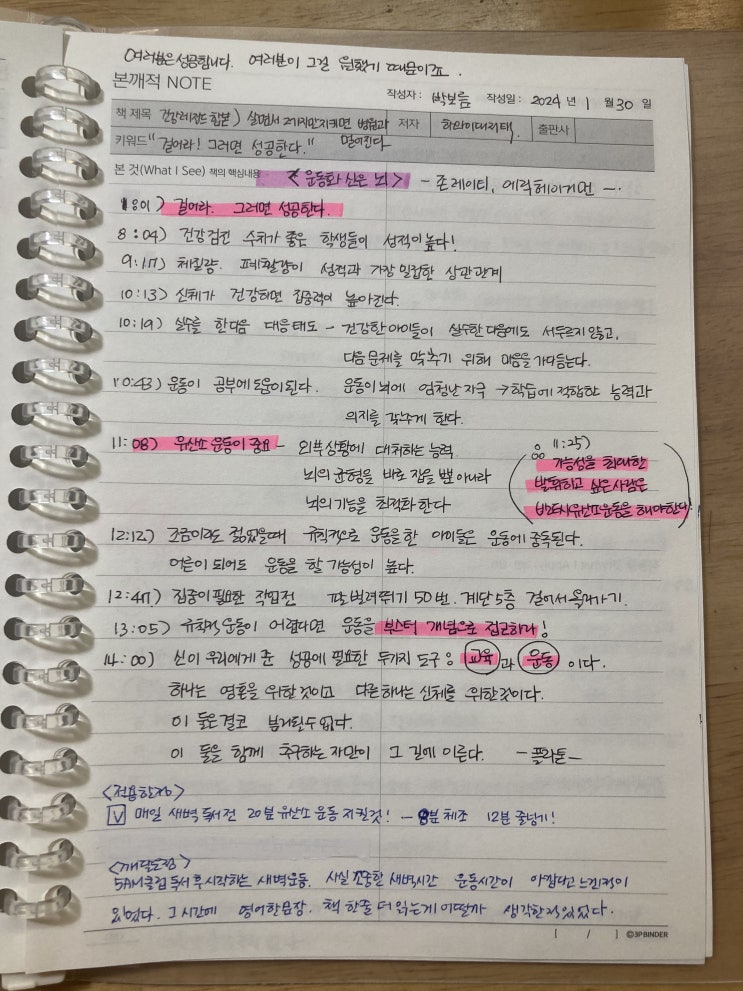 여러분은 성공합니다. 여러분이 그걸 원했기 때문이죠.
본깨적 NOTE
작성자 : 박보름 작성일 : 2024 년 1 월 30 일
책 제목 건강레전드 합본) 살면서 2가지만지키면 병원과 멀어진다 저자 하와이대저택 출판사
키워드 "걸어라! 그러면 성공한다."
본 것(What I See) 책의 핵심내용 <운동화 신은 뇌> - 존 레이티, 에릭 헤이거먼 -.
걸어라. 그러면 성공한다.
8:04) 건강검진 수치가 좋은 학생들이 성적이 높다!
9:17) 체질량. 폐활량이 성적과 가장 밀접한 상관관계
10:13) 신체가 건강하면 집중력이 높아진다.
10:19) 실수를 한다음 대응태도 - 건강한 아이들이 실수한 다음에도 서두르지 않고,
다음 문제를 맞추기 위해 마음을 가다듬는다.
10:43) 운동이 공부에 도움이 된다. 운동이 뇌에 엄청난 자극 → 학습에 적합한 능력과
의지를 갖추게 한다.
11:08) 유산소 운동이 중요 - 외부상황에 대처하는 능력
뇌의 균형을 바로 잡을 뿐 아니라
뇌의 기능을 최적화 한다
11:25)
가능성을 최대한
발휘하고 싶은 사람은
반드시 유산소 운동을 해야한다!
12:12) 조금이라도 젊었을때 규칙적으로 운동을 한 아이들은 운동에 중독된다.
어른이 되어도 운동을 할 가능성이 높다.
12:47) 집중이 필요한 작업전 팔 벌려뛰기 50번. 계단 5층 걸어서 올라가기.
13:05) 규칙적 운동이 어렵다면 운동을 부스터 개념으로 접근하라!
14:00) 신이 우리에게 준 성공에 필요한 두가지 도구는 교육과 운동이다.
하나는 영혼을 위한 것이고 다른 하나는 신체를 위한 것이다.
이 둘은 결코 분리될 수 없다.
이 둘을 함께 추구하는 자만이 그 길에 이른다. -플라톤-
<적용한가>
V 매일 새벽 독서 전 20분 유산소 운동 지킬것! - 8분 체조 12분 줄넘기!
<깨달은점>
5AM클럽 독서 후 시작하는 새벽운동. 사실 조용한 새벽시간 운동시간이 아깝다고 느낀적이
있었다. 그 시간에 영어한문장. 책 한줄 더 읽는게 어떨까 생각한적 있었다.
[ / ] ©3PBINDER